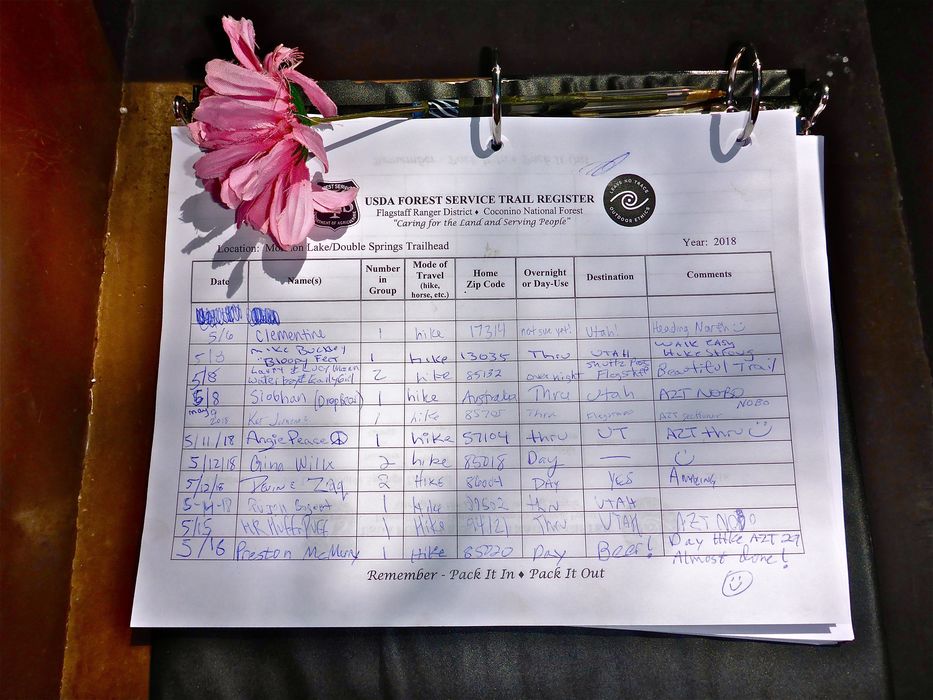 USDA FOREST SERVICE TRAIL REGISTER
Flagstaff Ranger District ♦ Coconino National Forest
"Caring for the Land and Serving People"
LEAVE NO TRACE
OUTDOOR ETHICS
Location: Lake/Double Springs Trailhead
Year: 2018
Date Name(s) Number in Group Mode of Travel (hike, horse, etc.) Home Zip Code Overnight or Day-Use Destination Comments
5/6 Clementine 1 hike 17314 not sure yet! Utah! Heading North
Mike Buckley "Bloody Feet" 1 hike 13035 Thru UTAH WALK EASY Hike Strong
5/8 Larry & Lucy 2 hike 85132 overnight Beautiful Trail
5/8 Siobhan 1 hike Australia Thru Utah AZT NOBO
may 9 2018 1 hike 85705 Thru NOBO
5/11/18 Angie Peace 1 hike 57104 thru UT AZT thru
5/12/18 Gina Wilk 2 hike 85018 Day —
5/12/18 2 HIKE 86004 DAY YES Amazing
5-14-18 1 Hike thru UTAH
5/15 MR HUFFN PUFF 1 Hike 94121 Thru UTAH AZT NOBO
5/16 Preston McMurry 1 Hike 85020 Day Beer! Day Hike AZT 29 Almost done!
Remember - Pack It In ♦ Pack It Out